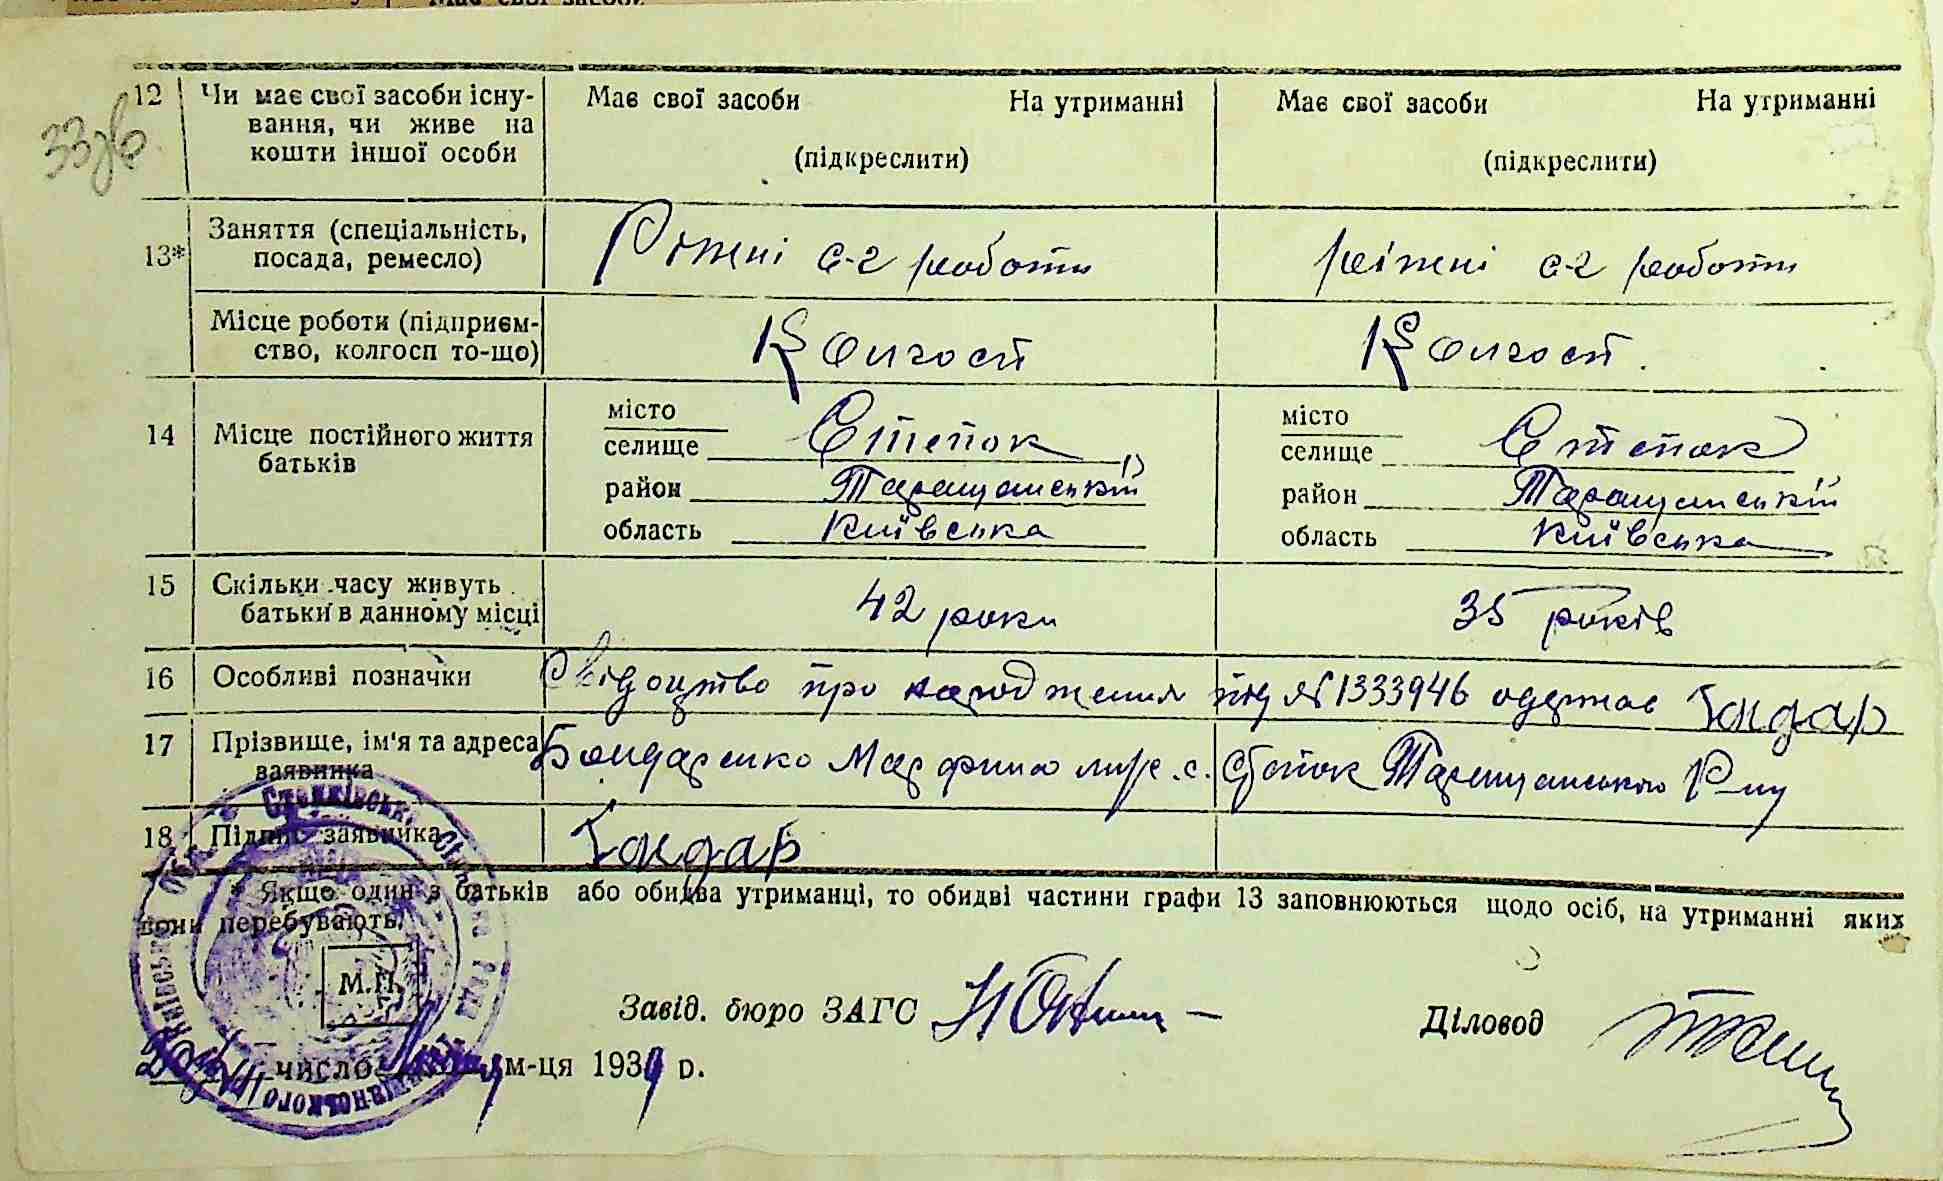 Має свої засоби
33зв
12 Чи має свої засоби існу- Має свої засоби На утриманні Має свої засоби На утриманні
вання, чи живе на
кошти іншої особи (підкреслити) (підкреслити)
13* Заняття (спеціальність, Ріжні с-г роботи ріжні с-г роботи
посада, ремесло)
Місце роботи (підприєм- Колгосп Колгосп.
ство, колгосп то-що)
14 Місце постійного життя батьків
місто місто
селище Степок селище Степок
район Таращанській район Таращанській
область Київська область Київська
15 Скільки часу живуть 42 роки 35 років
батьки в данному місці
16 Особливі позначки Свідоцтво про народження під № 1333946 одержав Бондар
17 Прізвище, ім'я та адреса Бондаренко Марфина с. Степок Таращанського Р-ну
заявника
18 Підпис заявника Бондар
* Якщо один з батьків або обидва утриманці, то обидві частини графи 13 заповнюються щодо осіб, на утриманні яких
вони перебувають.
М.П.
Завід. бюро ЗАГС Діловод
число м-ця 1939 р.